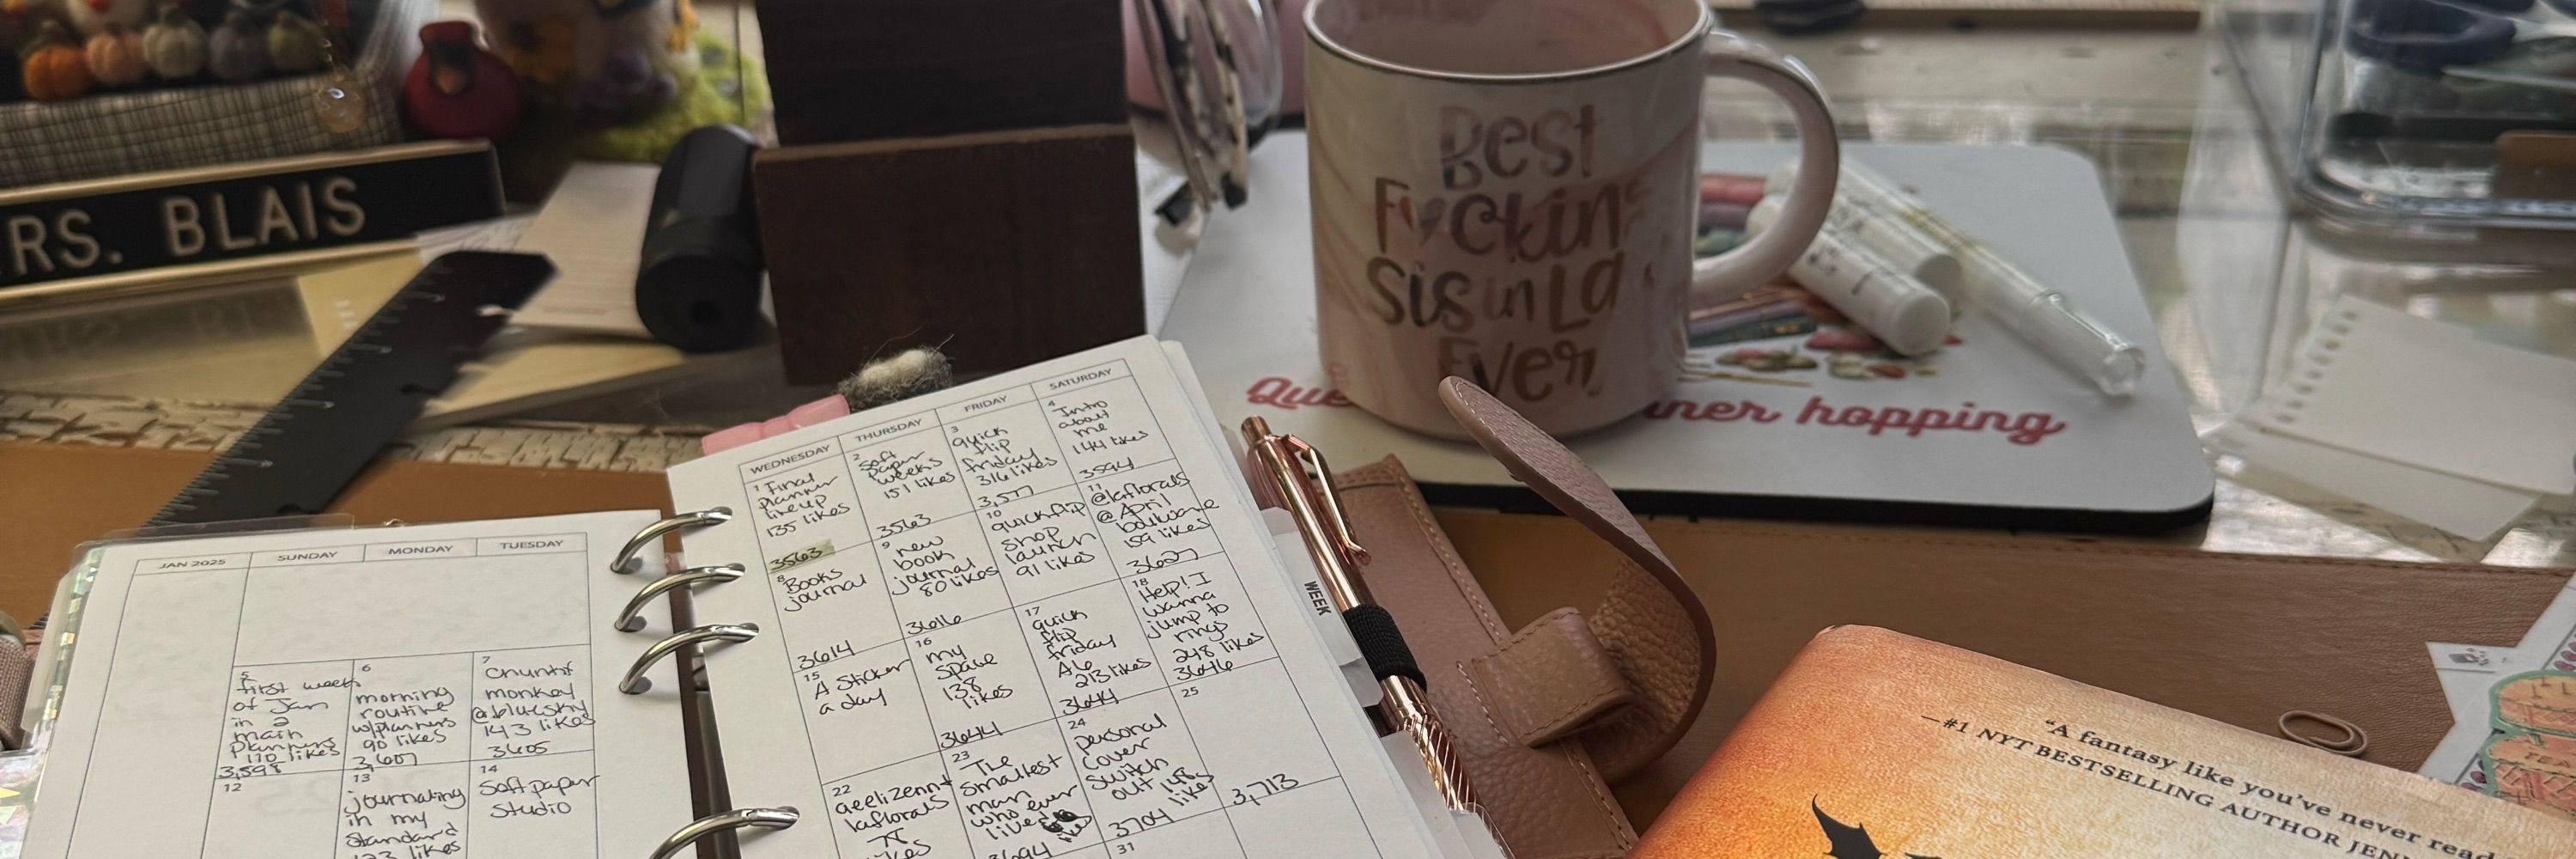 RS. BLAIS
Best
Fuckin
Sis in La
Ever.
Que
nner hopping
WEEK
JAN 2025
SUNDAY
MONDAY
TUESDAY
5
first week
of Jan
in 2
main
planners
110 likes
3,598
6
morning
routine
w/planners
90 likes
3,607
7
chunky
monkey
143 likes
3605
12
13
journaling
in my
standard
123 likes
14
Soft paper
studio
WEDNESDAY
THURSDAY
FRIDAY
SATURDAY
1 Final
planner
lineup
135 likes
3563
2
Soft
paper
weeks
151 likes
3563
3
quick
flip
friday
316 likes
3,577
4
Intro
about
me
144 likes
3594
8
Books
journal
3614
9
new
book
journal
80 likes
3616
10
quickflip
shop
launch
91 likes
11
@laflorals
@April
159 likes
3627
15
A sticker
a day
16
my
space
138
likes
3644
17
quick
flip
friday
A6
213 likes
3644
18
Help! I
wanna
jump to
rings
248 likes
3646
22
laflorals
likes
23
The
smallest
man
who ever
lived
likes
3694
24
personal
cover
switch
out 148
likes
3704
25
3,713
31
"A fantasy like you've never read
—#1 NYT BESTSELLING AUTHOR JEN